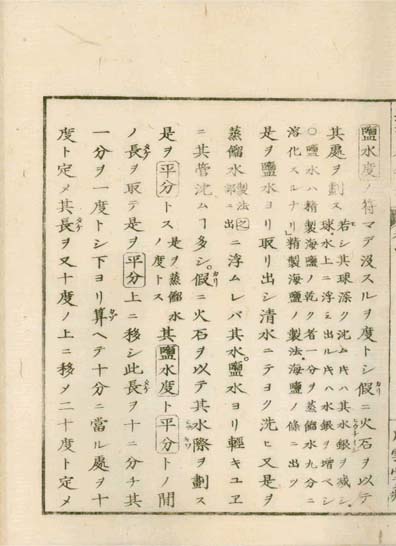 鹽水度ノ符マデ沒スルヲ度トシ假ニ火石ヲ以テ
其處ヲ劃ス
若シ其球深ク沈ムキハ其水銀ヲ減シ
球水上ニ浮ミ出ルキハ水銀ヲ增ベシ
○鹽水ハ精製海鹽ノ乾ク者一分ヲ蒸餾水九分ニ
溶化スルナリ」精製海鹽ノ製法海鹽ノ條ニ出ツ
是ヲ鹽水ヨリ取リ出シ清水ニテヨク洗ヒ又是ヲ
蒸餾水製法之部ニ出ニ浮ムレバ其水鹽水ヨリ輕キユヱ
ニ其管沈ムヿ多シ假ニ火石ヲ以テ其水際ヲ劃ス
是ヲ平分トス是ヲ蒸餾水ノ度トス其鹽水度ト平分トノ間
ノ長ヲ取テ是ヲ平分上ニ移シ此長ヲ十ニ分チ其
一分ヲ一度トシ下ヨリ算ヘテ十分ニ當ル處ヲ十
度ト定メ其長ヲ又十度ノ上ニ移メ二十度ト定メ